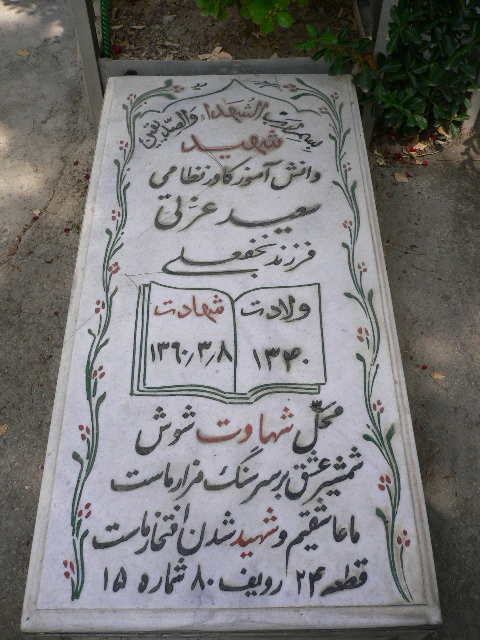 بسم رب الشهداء والصدیقین
شهید
دانش آموز کادر نظامی
سعید عزتی
فرزند نجفعلی
ولادت
۱۳۴۰
شهادت
۱۳۶۰٫۳٫۸
محل شهادت شوش
شمشیر عشق بر سر سنگ مزار ماست
ما عاشقیم و شهید شدن افتخار ماست
قطعه ۲۴ ردیف ۸۰ شماره ۱۵